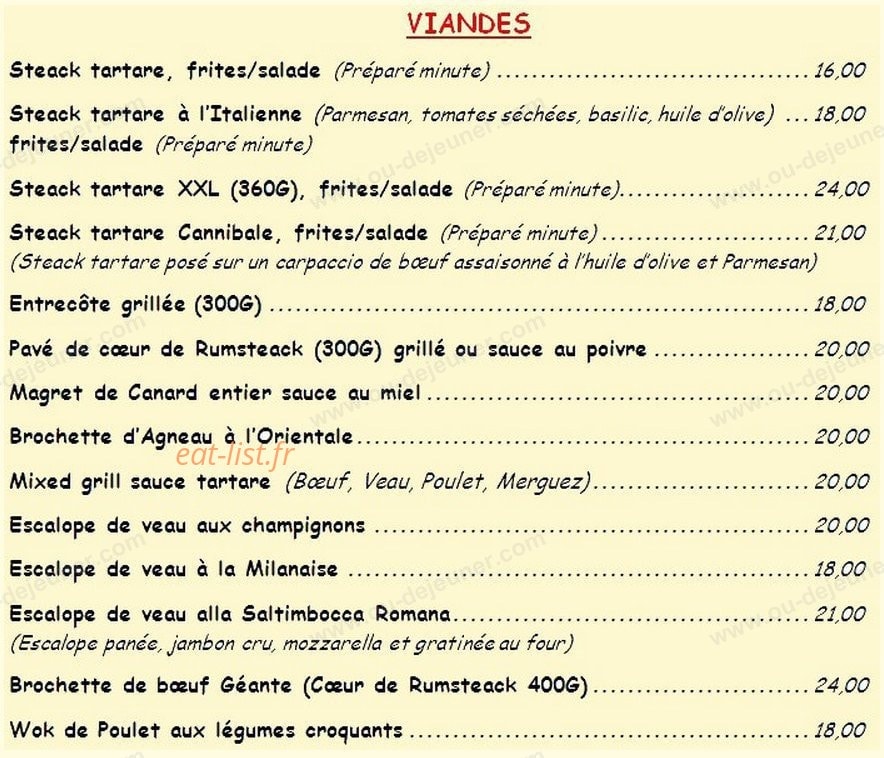 VIANDES
Steack tartare, frites/salade (Préparé minute) ................................... 16,00
Steack tartare à l'Italienne (Parmesan, tomates séchées, basilic, huile d'olive) ... 18,00
frites/salade (Préparé minute)
Steack tartare XXL (360G), frites/salade (Préparé minute)..................... 24,00
Steack tartare Cannibale, frites/salade (Préparé minute) ....................... 21,00
(Steack tartare posé sur un carpaccio de bœuf assaisonné à l'huile d'olive et Parmesan)
Entrecôte grillée (300G) ............................................................ 18,00
Pavé de cœur de Rumsteack (300G) grillé ou sauce au poivre ................. 20,00
Magret de Canard entier sauce au miel ........................................... 20,00
Brochette d'Agneau à l'Orientale................................................... 20,00
eat-list.fr
Mixed grill sauce tartare (Bœuf, Veau, Poulet, Merguez)........................ 20,00
Escalope de veau aux champignons ................................................ 20,00
Escalope de veau à la Milanaise ................................................... 18,00
Escalope de veau alla Saltimbocca Romana........................................ 21,00
(Escalope panée, jambon cru, mozzarella et gratinée au four)
Brochette de bœuf Géante (Cœur de Rumsteack 400G) ........................ 24,00
Wok de Poulet aux légumes croquants ............................................. 18,00
www.ou-dejeuner.com